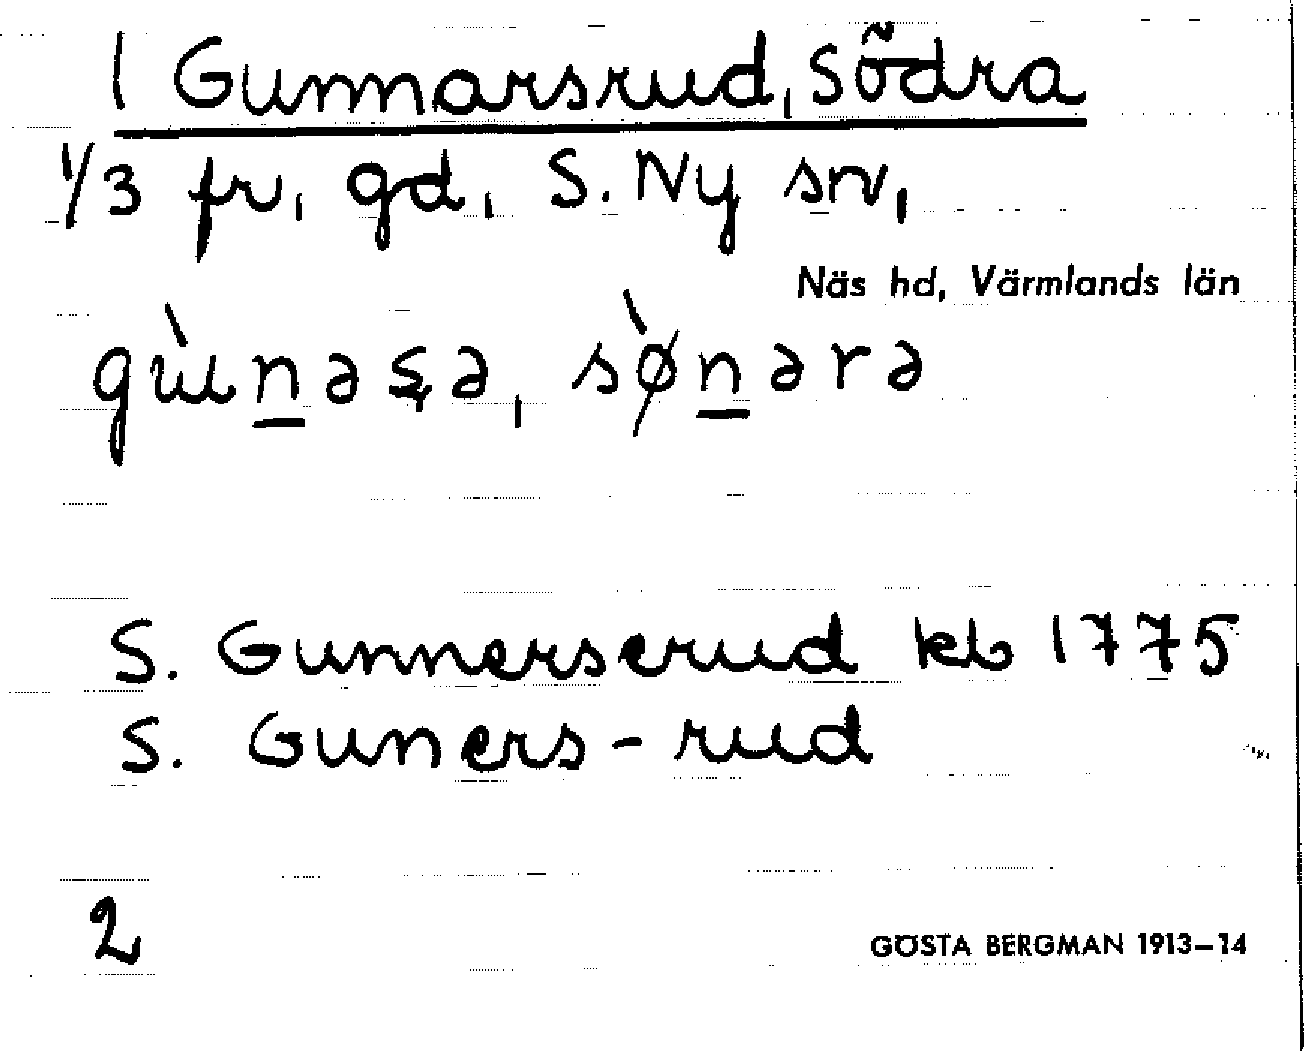 1 Gunnarsrud, Södra
1/3 fr, gd, S. Ny sn,
Näs hd, Värmlands län
gùn̲əʂə, sø̀n̲ərə
S. Gunnerserud kb 1775
S. Guners-rud
2
GÖSTA BERGMAN 1913–14